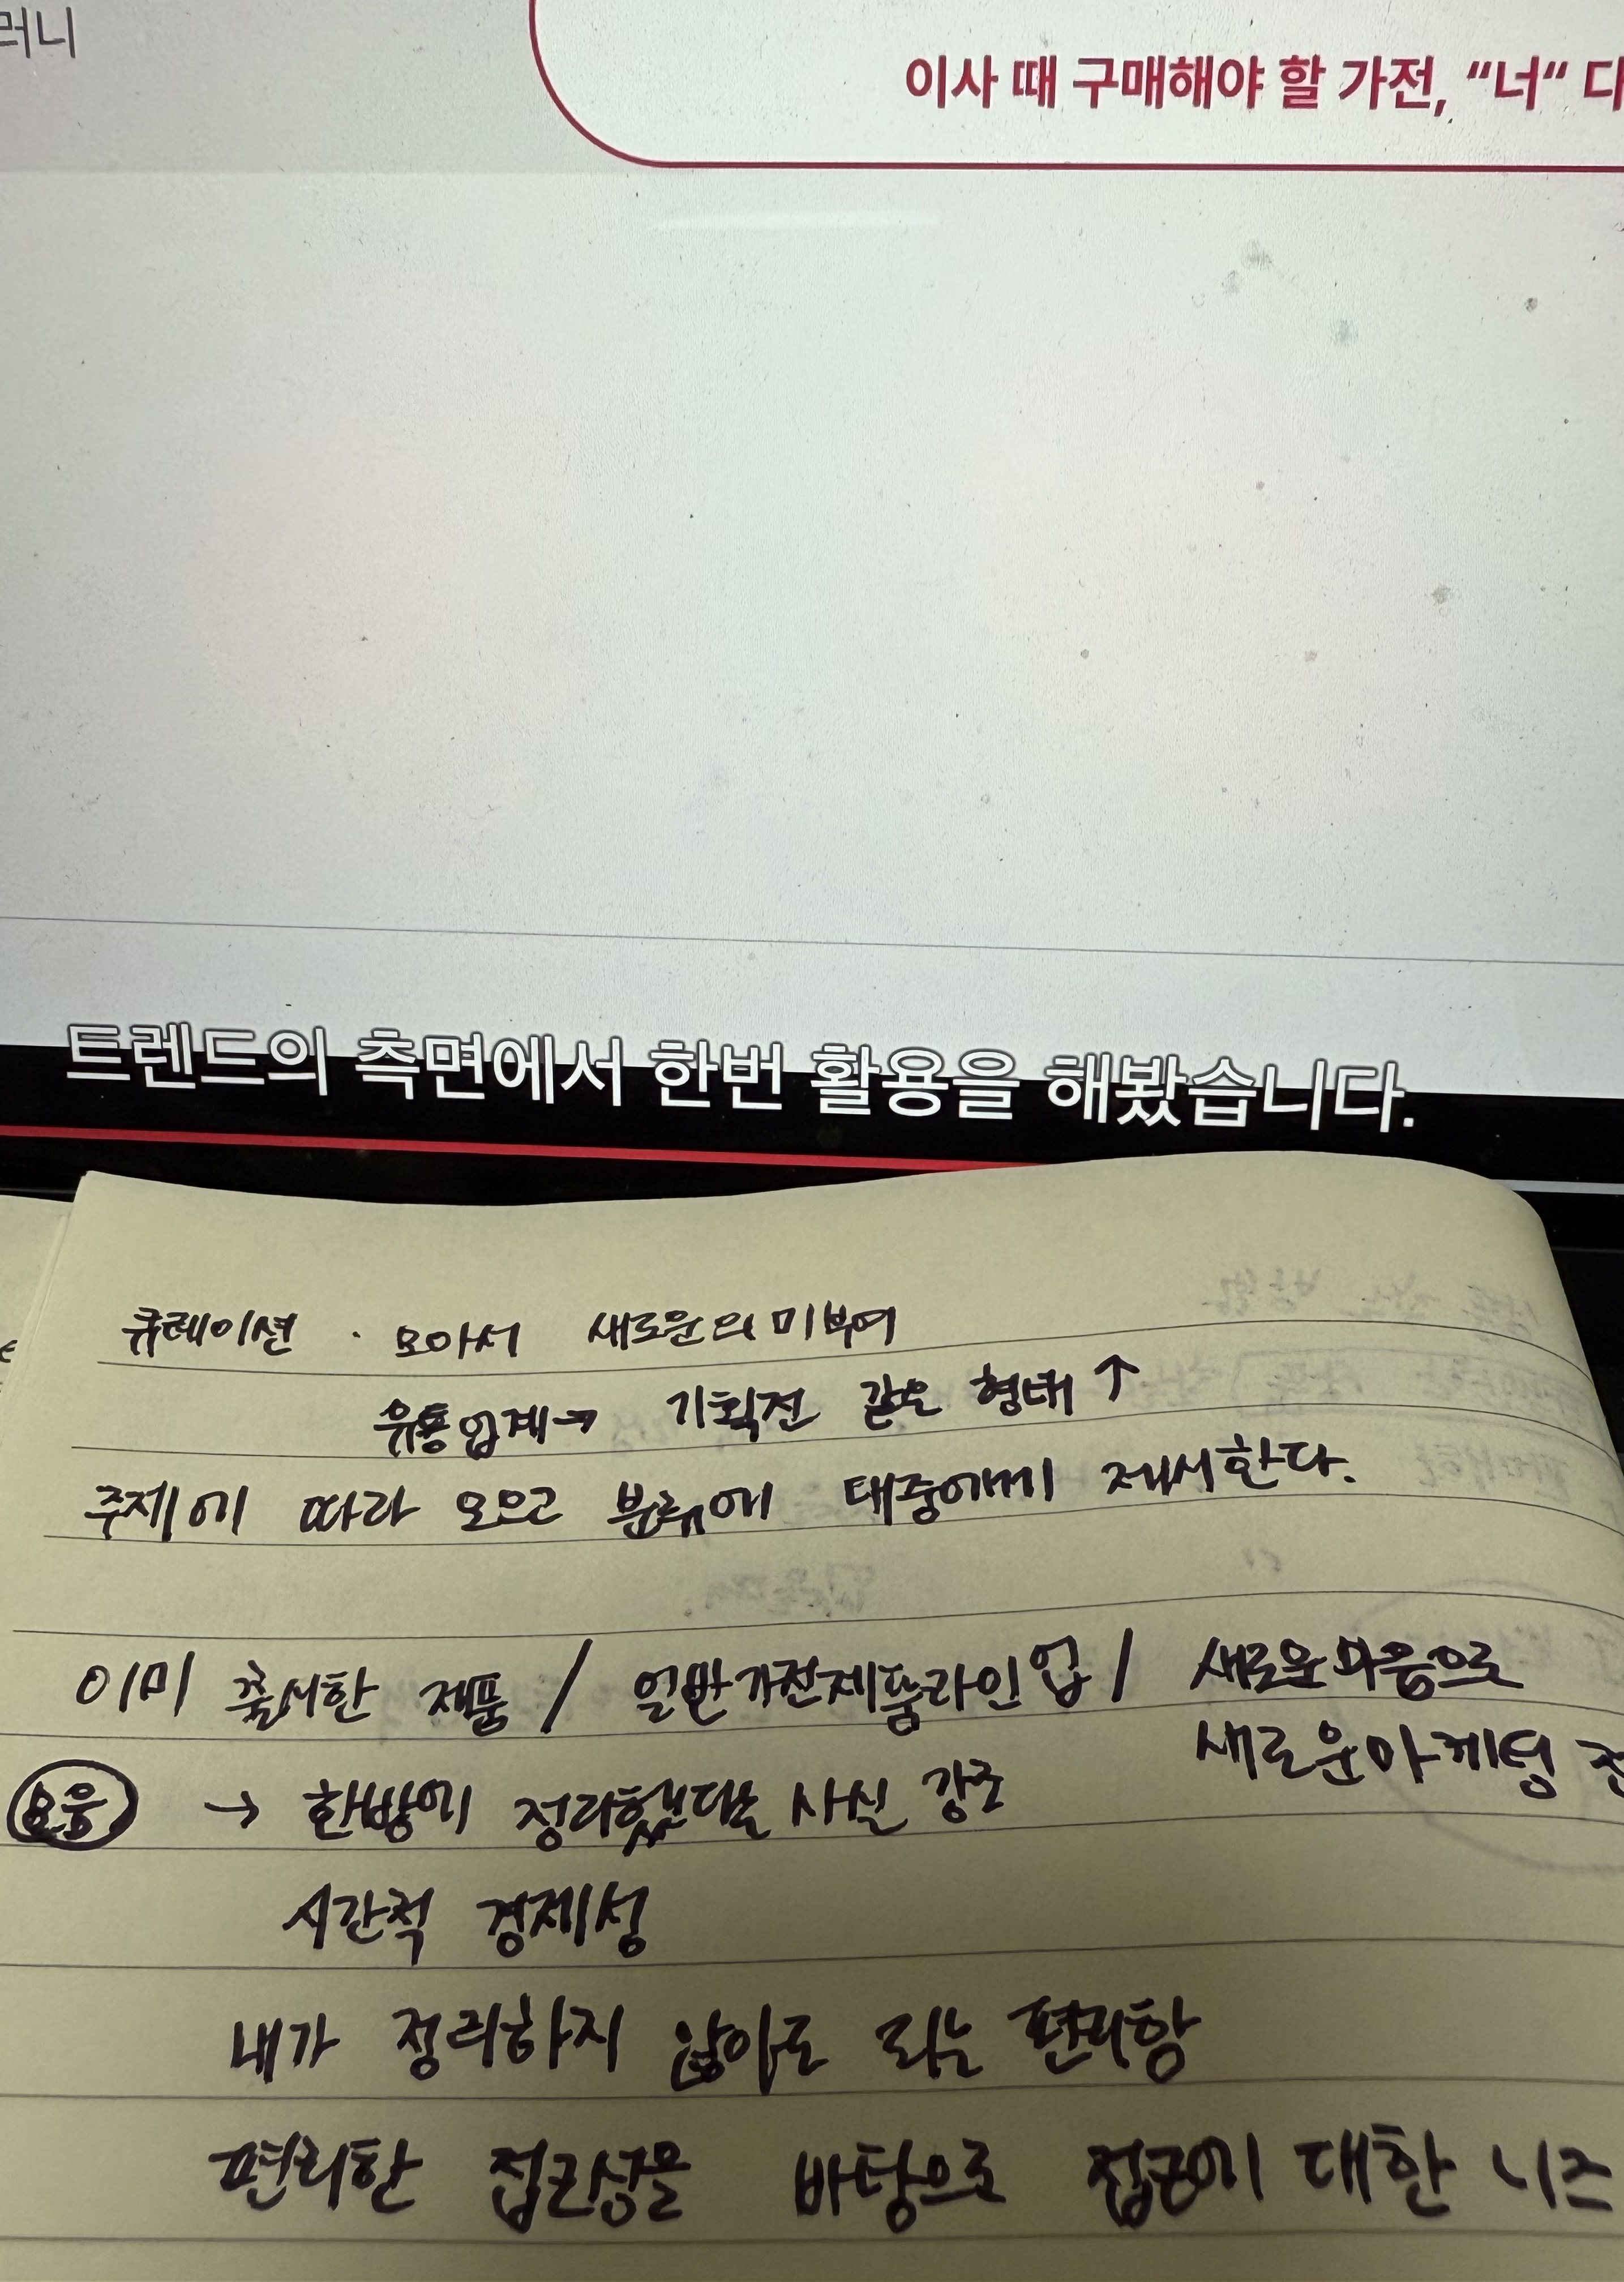 러니
이사 때 구매해야 할 가전, “너“ 다
트렌드의 측면에서 한번 활용을 해봤습니다.
큐레이션 · 모아서 새로운 의미부여
유통업계→ 기획전 같은 형태 ↑
주제에 따라 모으고 분류에 대중에게 제시한다.
이미 출시한 제품 / 일반가전제품라인업 / 새로운 마음으로
새로운마케팅
모음 → 한방에 정리했다는 사실 강조
시간적 경제성
내가 정리하지 않아도 되는 편리함
편리한 접근성을 바탕으로 접근에 대한 니즈